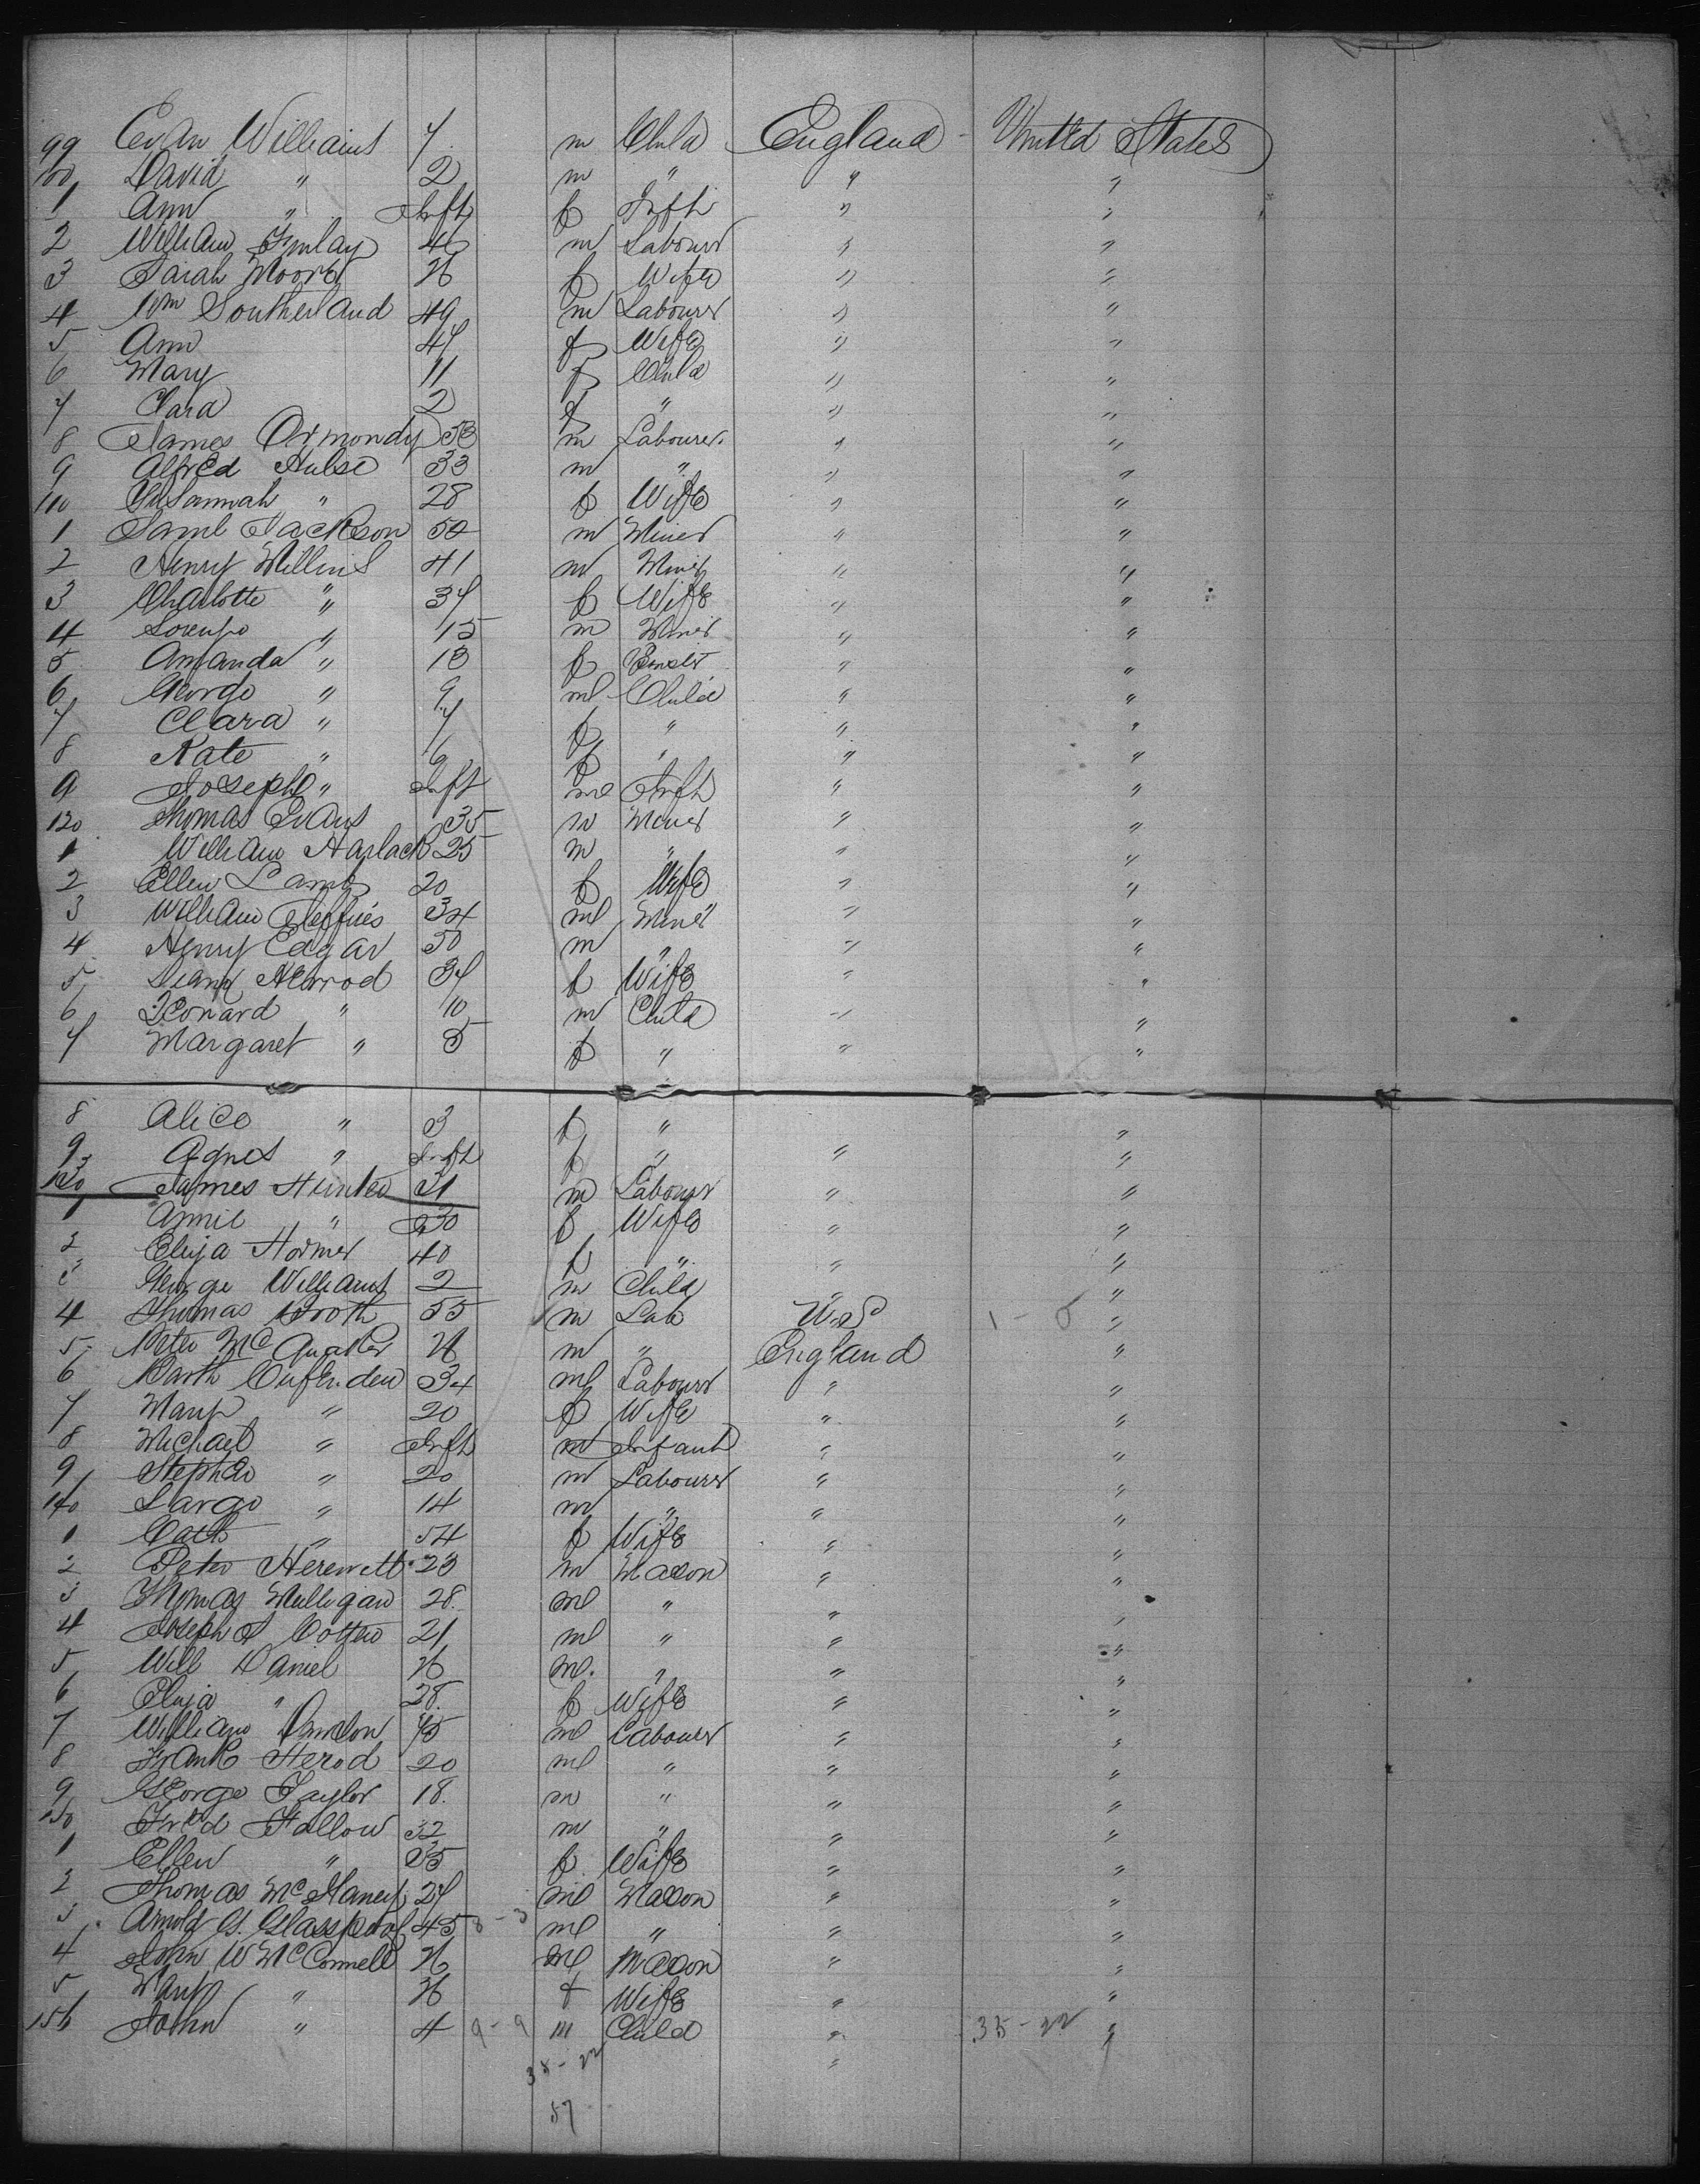 99 Evan Williams 7 m Child England United States
100 David " 2 m " " "
1 Ann " Inft f Inft " "
2 William Finlay 46 m Labourer " "
3 Sarah Moore 26 f Wife " "
4 Wm Southerland 49 m Labourer " "
5 Ann 47 f Wife " "
6 Mary 11 f Child " "
7 Clara 2 f " " "
8 James Ormondy 38 m Labourer " "
9 Alfred Hulse 33 m " " "
110 Susannah " 28 f Wife " "
1 Saml Jackson 50 m Miner " "
2 Henry Willins 41 m Miner " "
3 Charlotte " 37 f Wife " "
4 Lorenzo " 15 m Miner " "
5 Amanda " 13 f " "
6 George " 9 ml Child " "
7 Clara " 7 f " " "
8 Kate " 6 f " " "
9 Joseph " Inft ml Inft " "
120 Thomas Evans 35 m Miner " "
1 William Haslack 25 m " " "
2 Ellen Lamb 20 f Wife " "
3 William Jeffries 34 ml Miner " "
4 Henry Edgar 50 m " " "
5 Herrod 37 f Wife " "
6 Leonard " 10 m Child " "
7 Margaret " 5 f " " "
8 Alice " 3 f " "
9 Agnes " Inft f " " "
130 James Hunter 31 m Labourer " "
1 Annie " 30 f Wife " "
2 Eliza Horner 40 f " " "
3 George Williams 2 m Child " "
4 Thomas Booth 55 m Lab U.S 1 - 0 "
5 Peter McQuaker 26 m " England "
6 Barth 34 ml Labourer " "
7 Mary " 20 f Wife " "
8 Michael " Inft m Infant " "
9 Stephen " 20 m Labourer " "
140 " 14 m " " "
1 Cath " 54 f Wife " "
2 Peter 23 m Mason " "
3 Thomas Mulligan 28. ml " " "
4 Joseph A Cotter 21 ml " " "
5 Will Daniel 26 ml. " " "
6 Eliza " 28. f Wife " "
7 William 45 ml Labourer " "
8 Frank Herod 20 ml " " "
9 George Taylor 18. m " " "
150 Fred Fallow 32 m " " "
1 Ellen " 35 f Wife " "
2 Thomas 27 ml Mason " "
3 Arnold G. Glasspool 45 8 - 3 ml " " "
4 John W McConnell 26 ml Mason " "
5 Mary " 26 f Wife " "
156 John " 4 9 - 9 m Child " 35 - 22 "
35 - 22 "
57